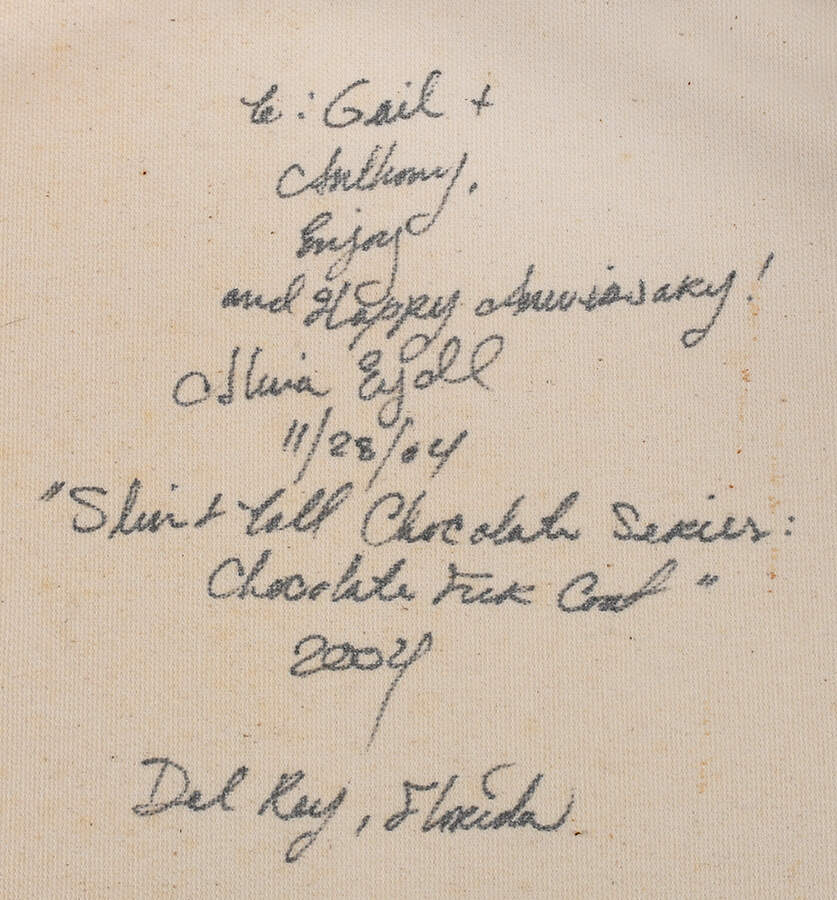 To: Gail +
Anthony,
Enjoy
and Happy Anniversary!
11/28/04
"Slim & Tall Chocolate Series:
Chocolate Coat"
2004
Del Ray, Florida